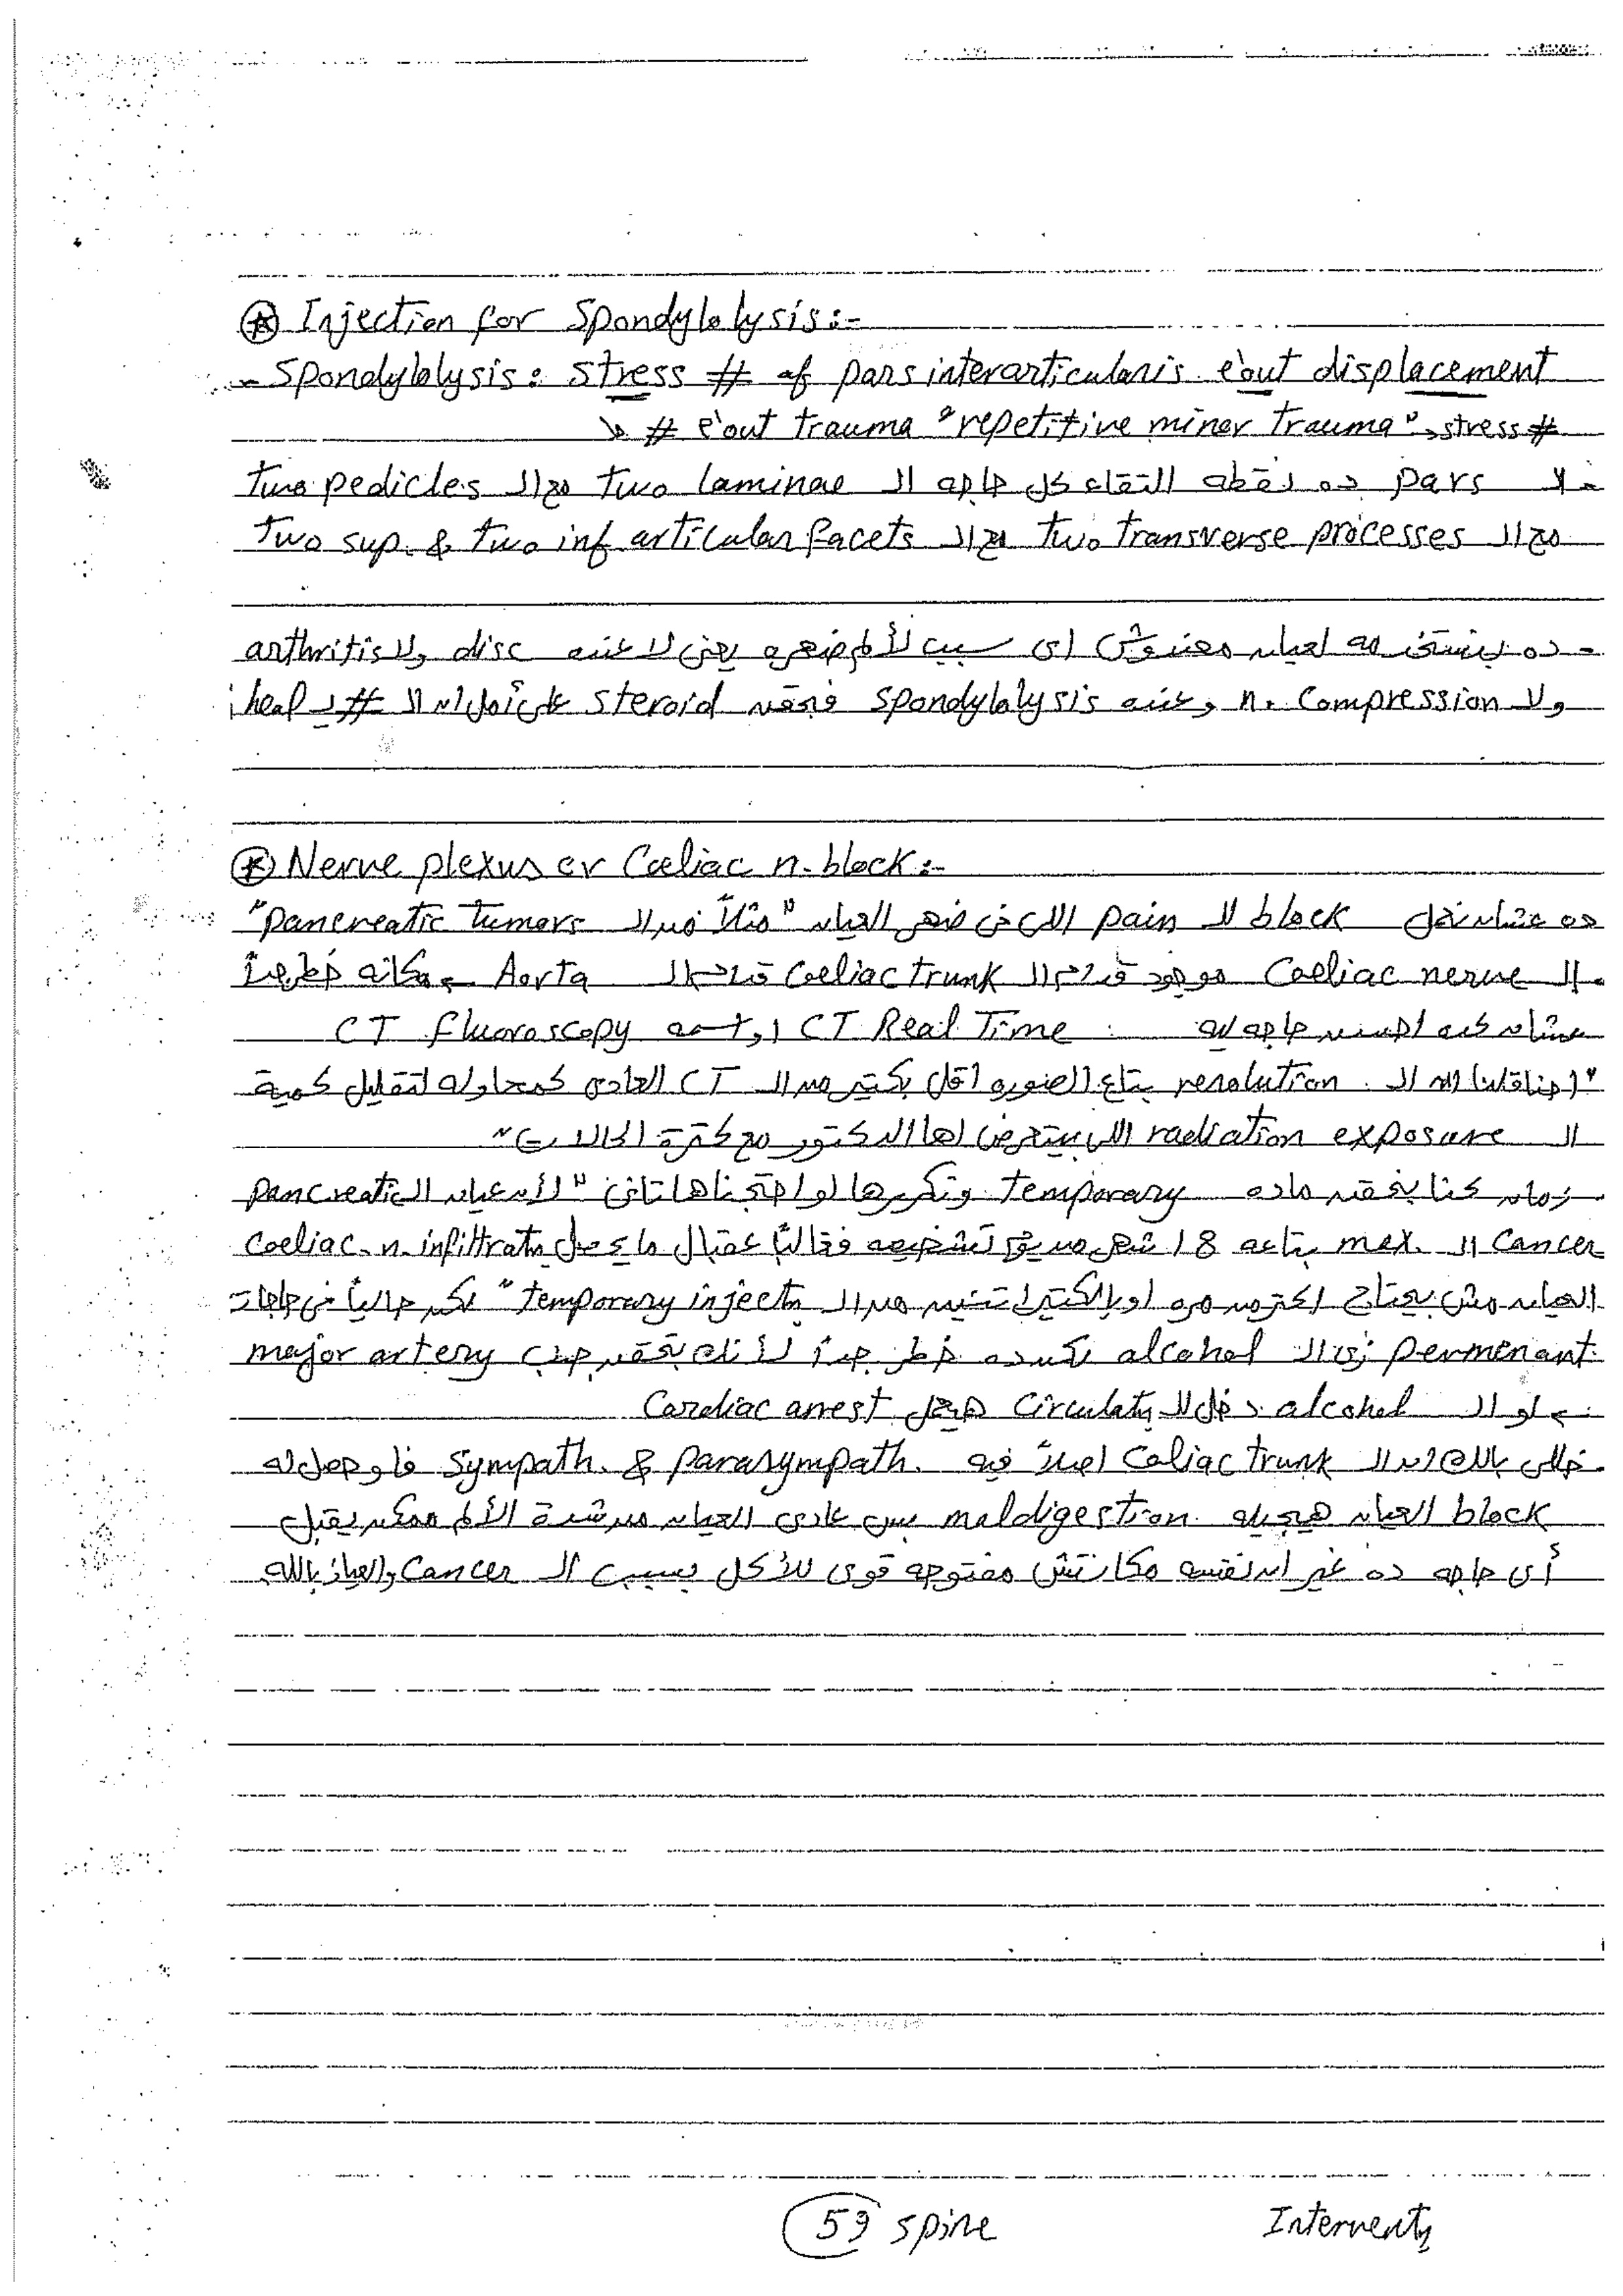 ⊛ Injection for Spondylolysis:-
- Spondylolysis: Stress # of pars interarticularis e'out displacement
↳ # e'out trauma "repetitive minor trauma", stress #
- الـ pars ده نقطه التقاء كل حاجه الـ two laminae مع الـ two pedicles
مع الـ two transverse processes مع الـ two sup. & two inf articular facets
- ده بيستخدم لعيان معندوش أى سبب لألم ضهره يعنى لا عنده disc ولا arthritis
ولا n. compression وعنده spondylolysis فنحقنه steroid على أمل ان الـ # يـ heal
⊛ Nerve plexus or Cœliac n. block:-
ده عشان نعمل block للـ pain اللى فى ضهر العيان "مثلاً من الـ pancreatic tumors"
- الـ Coeliac nerve موجود قدام الـ Coeliac trunk قدام الـ Aorta → مكانه خطر جداً
عشان كده احسن حاجه ليه CT Real Time او اسمه CT fluoroscopy
"احنا قلنا ان الـ resolution بتاع الصوره اقل بكتير من الـ CT العادى كمحاوله لتقليل كمية
الـ radiation exposure اللى بيتعرض لها الدكتور مع كترة الحالات"
- زمان كنا بنحقن ماده temporary ونكررها لو احتجناها تانى "لأن عيان الـ pancreatic
cancer الـ max. بتاعه 18 شهر من يوم تشخيصه فغالباً عقبال ما يحصل coeliac n. infiltratn
العيان مش بيحتاج اكتر من مره او بالكتير اتنين من الـ temporary injectn" لكن حالياً فى حاجات
permenant زى الـ alcohol لكن ده خطر جداً لأنك بتحقن جنب major artery
→ لو الـ alcohol دخل للـ Circulatn هيعمل Cardiac arrest
- خلى بالك ان الـ Celiac trunk اصلاً فيه Sympath. & parasympath. فلو حصل له
block العيان هيجيله maldigestion بس عادى العيان من شدة الألم ممكن يقبل
أى حاجه ده غير ان نفسه مكانتش مفتوحه قوى للأكل بسبب الـ Cancer والعياذ بالله
59 spine
Interventn